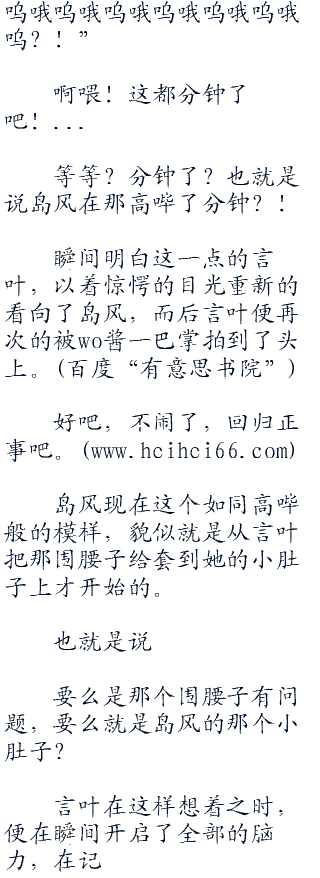 呜哦呜哦呜哦呜哦呜哦呜哦
呜？！”
啊喂！这都分钟了
吧！...
等等？分钟了？也就是
说岛风在那高哔了分钟？！
瞬间明白这一点的言
叶，以着惊愕的目光重新的
看向了岛风，而后言叶便再
次的被wo酱一巴掌拍到了头
上。(百度“有意思书院”)
好吧，不闹了，回归正
事吧。(www.hcihci66.com)
岛风现在这个如同高哔
般的模样，貌似就是从言叶
把那围腰子给套到她的小肚
子上才开始的。
也就是说
要么是那个围腰子有问
题，要么就是岛风的那个小
肚子？
言叶在这样想着之时，
便在瞬间开启了全部的脑
力，在记